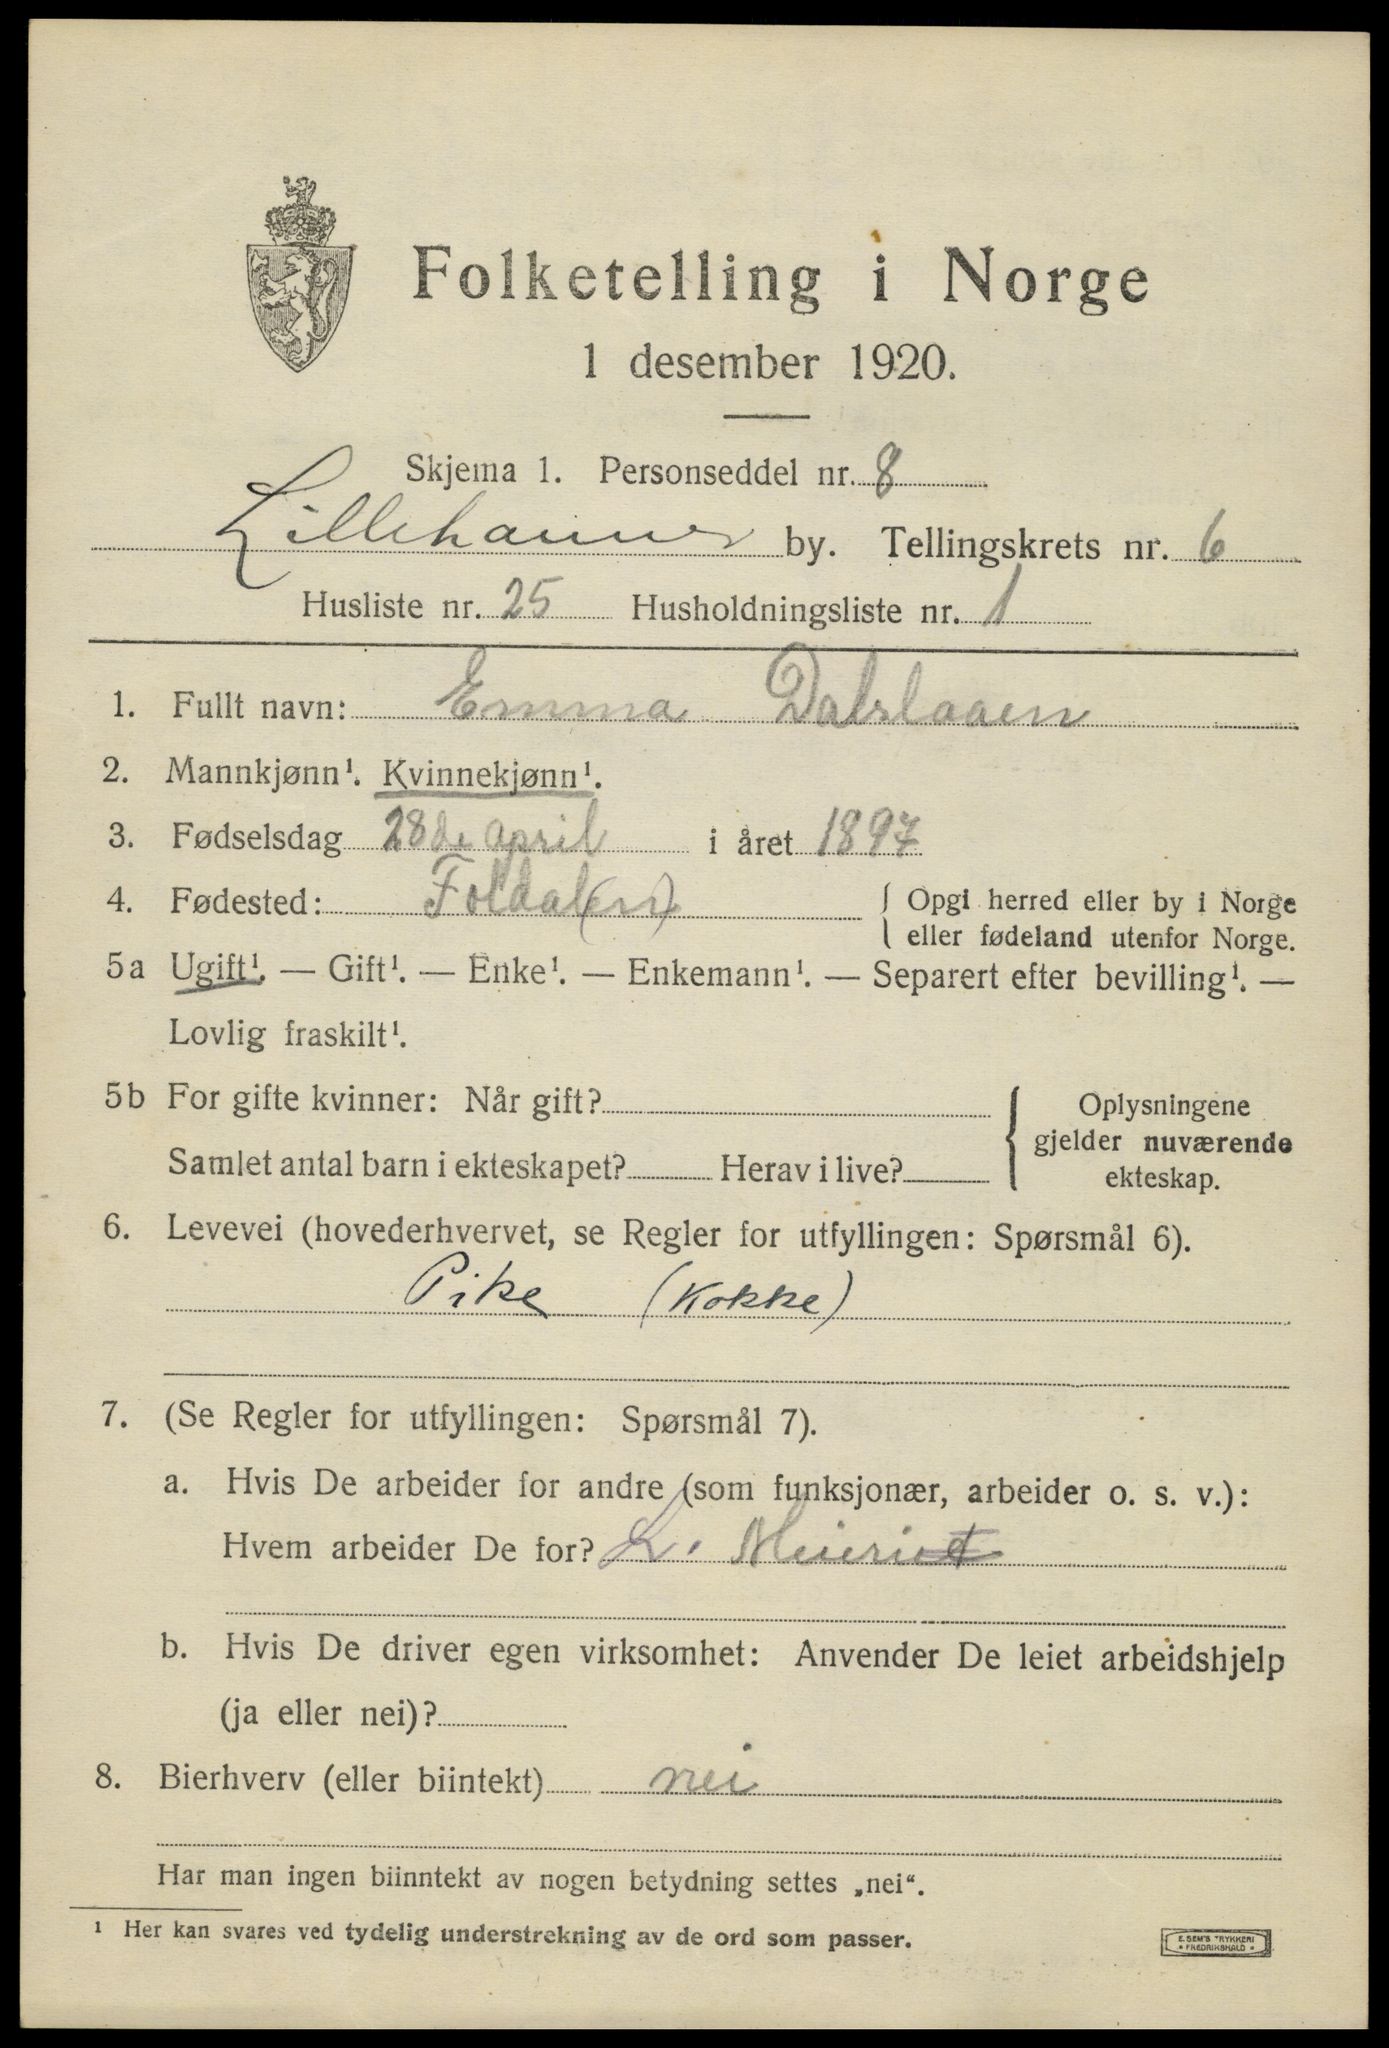 Folketelling i Norge
1 desember 1920.
Skjema 1. Personseddel nr. 8
Lillehammer by. Tellingskrets nr. 6
Husliste nr. 25 Husholdningsliste nr. 1
1. Fullt navn: Emma Dalslaaen
2. Mannkjønn¹. Kvinnekjønn¹.
3. Fødselsdag 28de april i året 1897
4. Fødested: Foldal(en) { Opgi herred eller by i Norge
eller fødeland utenfor Norge.
5a Ugift¹. — Gift¹. — Enke¹. — Enkemann¹. — Separert efter bevilling¹. —
Lovlig fraskilt¹.
5b For gifte kvinner: Når gift? { Oplysningene
gjelder nuværende
Samlet antal barn i ekteskapet? Herav i live? ekteskap.
6. Levevei (hovederhvervet, se Regler for utfyllingen: Spørsmål 6).
Pike (Kokke)
7. (Se Regler for utfyllingen: Spørsmål 7).
a. Hvis De arbeider for andre (som funksjonær, arbeider o. s. v.):
Hvem arbeider De for? L. Meieriet
b. Hvis De driver egen virksomhet: Anvender De leiet arbeidshjelp
(ja eller nei)?
8. Bierhverv (eller biintekt) nei
Har man ingen biinntekt av nogen betydning settes „nei“.
¹ Her kan svares ved tydelig understrekning av de ord som passer.
E. SEM'S TRYKKERI
• FREDRIKSHALD •